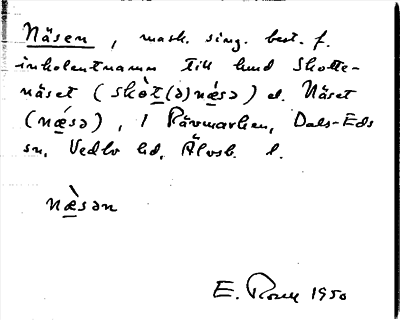 Näsen, mask. sing. best. f.
inkolentnamn till hmd Skotte-
näset (skòt(ə)nǽsə) el. Näset
(nǽsə), i Rävmarken, Dals-Eds
sn, Vedbo hd, Älvsb. l.
næ̀sən
E. Rosell 1950